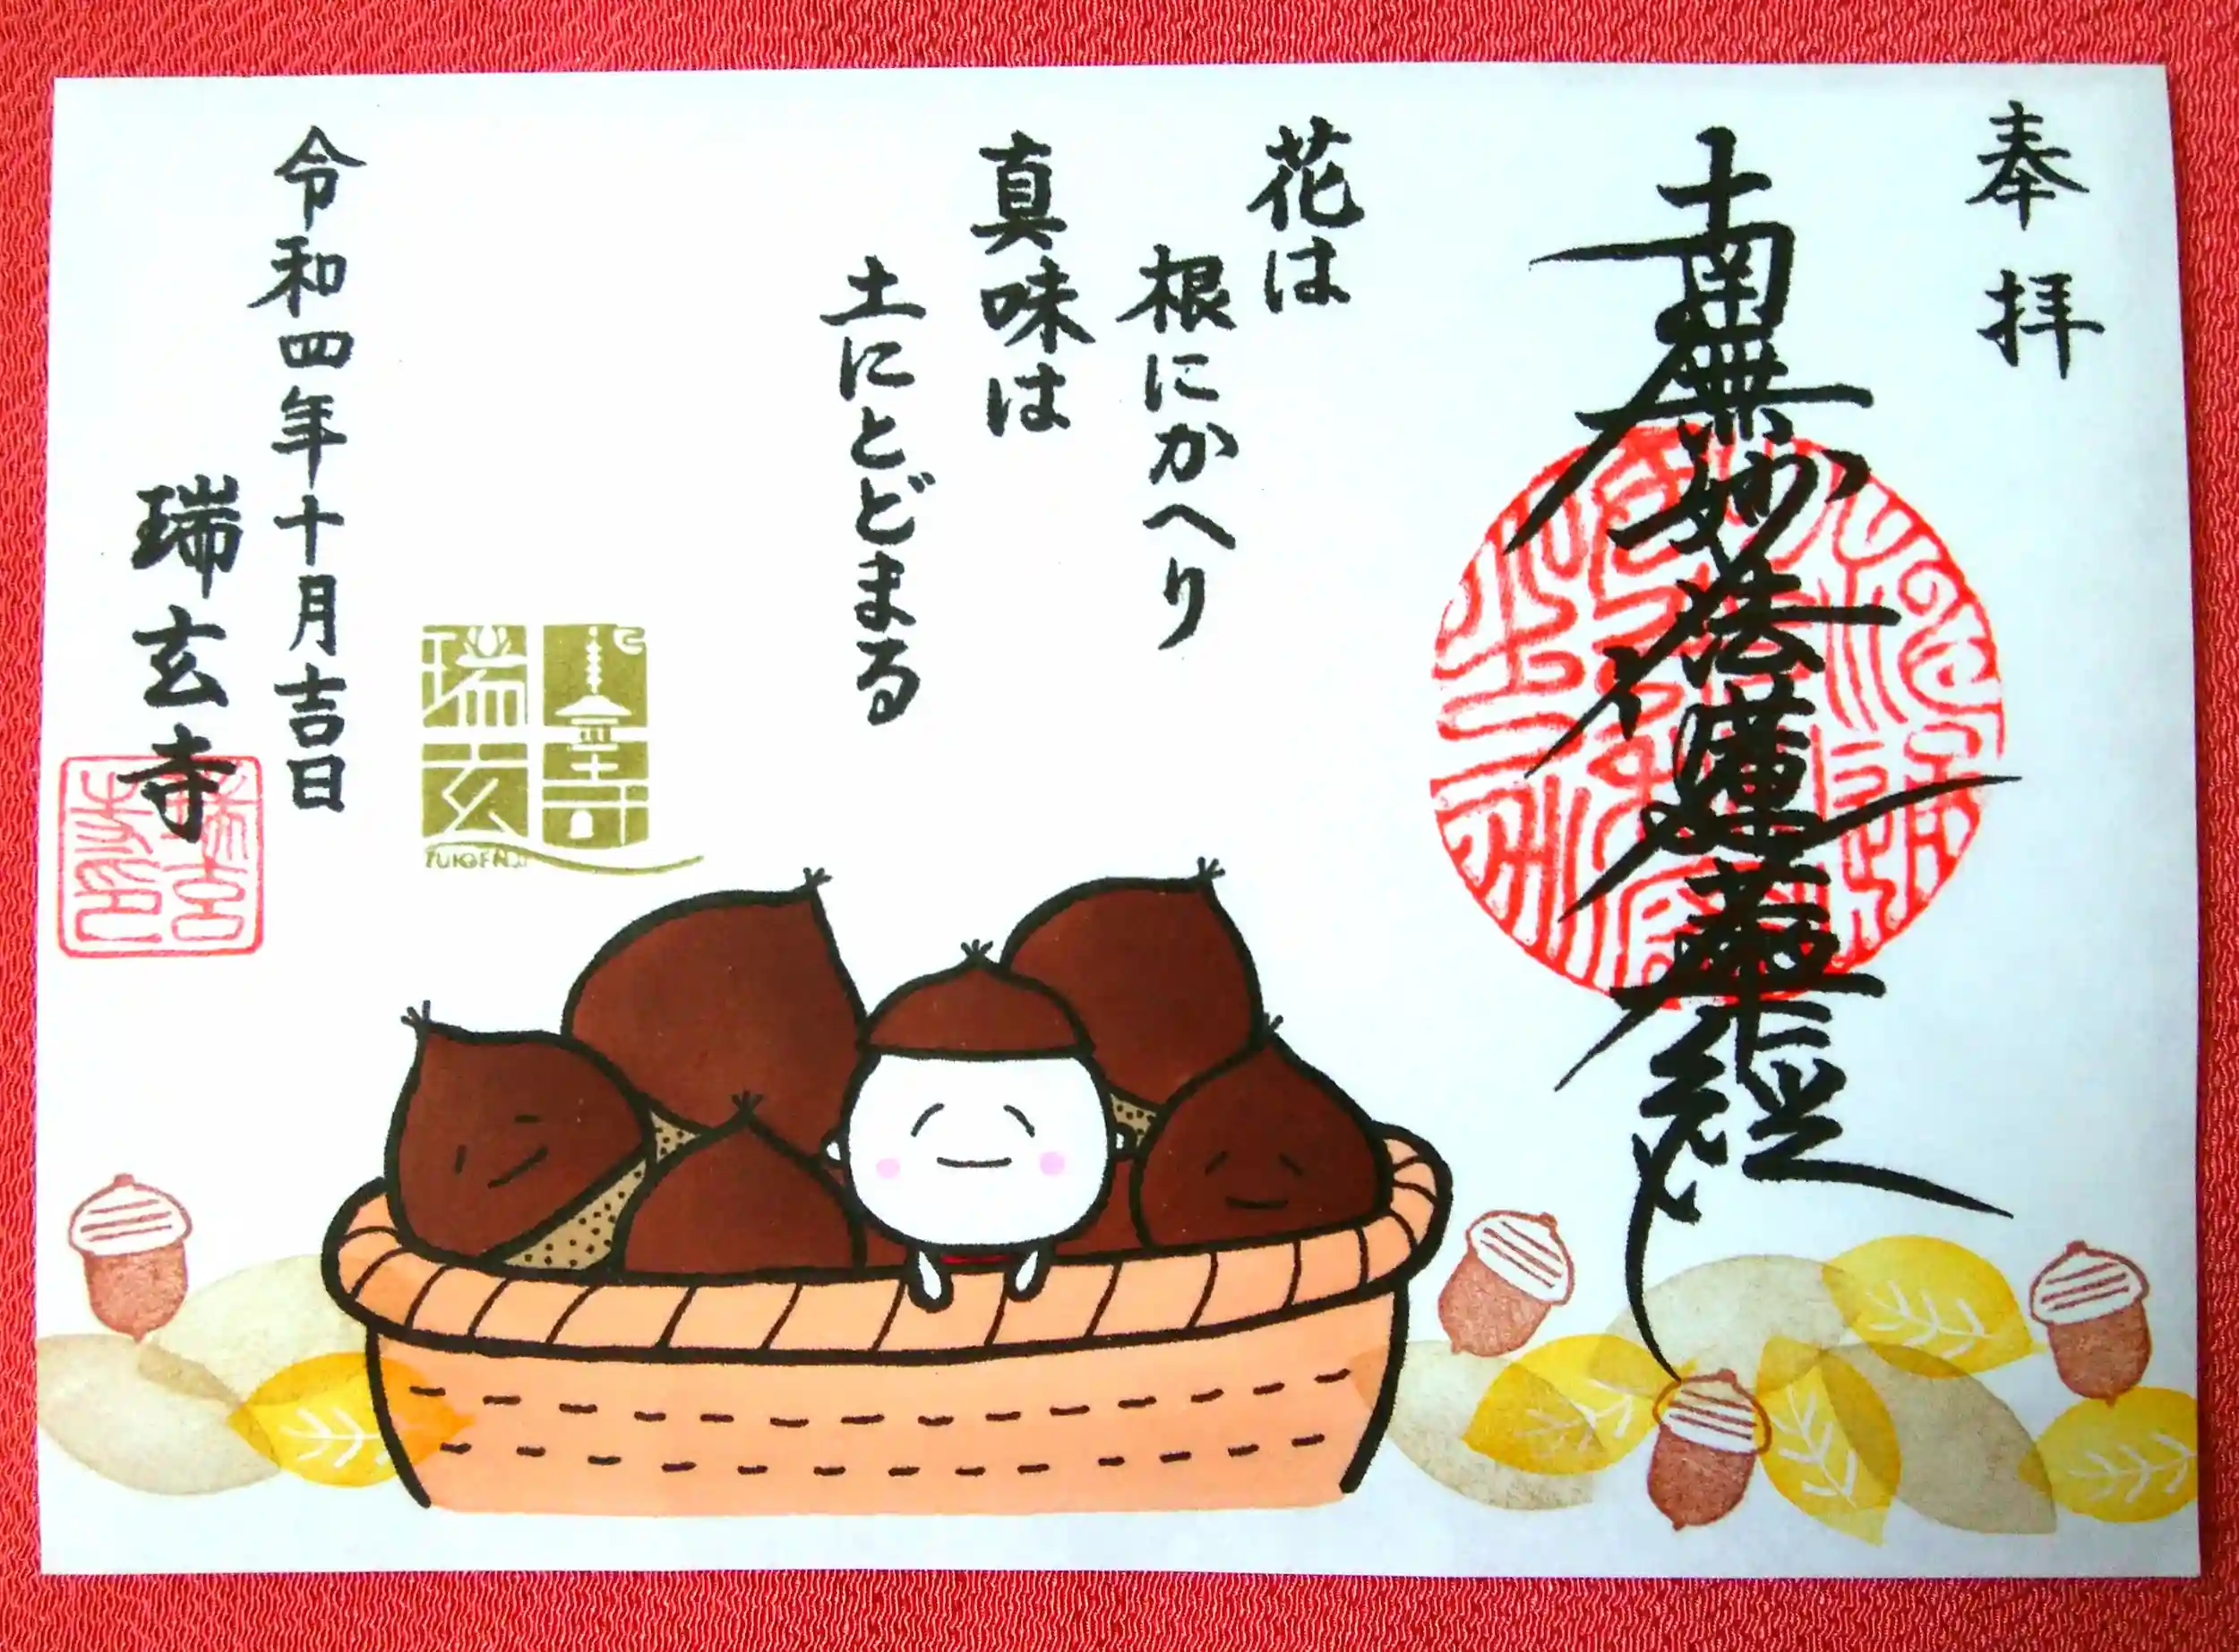 奉拝
南無妙法蓮華経
花は
根にかへり
真味は
土にとどまる
瑞玄寺
ZUIGENJI
令和四年十月吉日
瑞玄寺